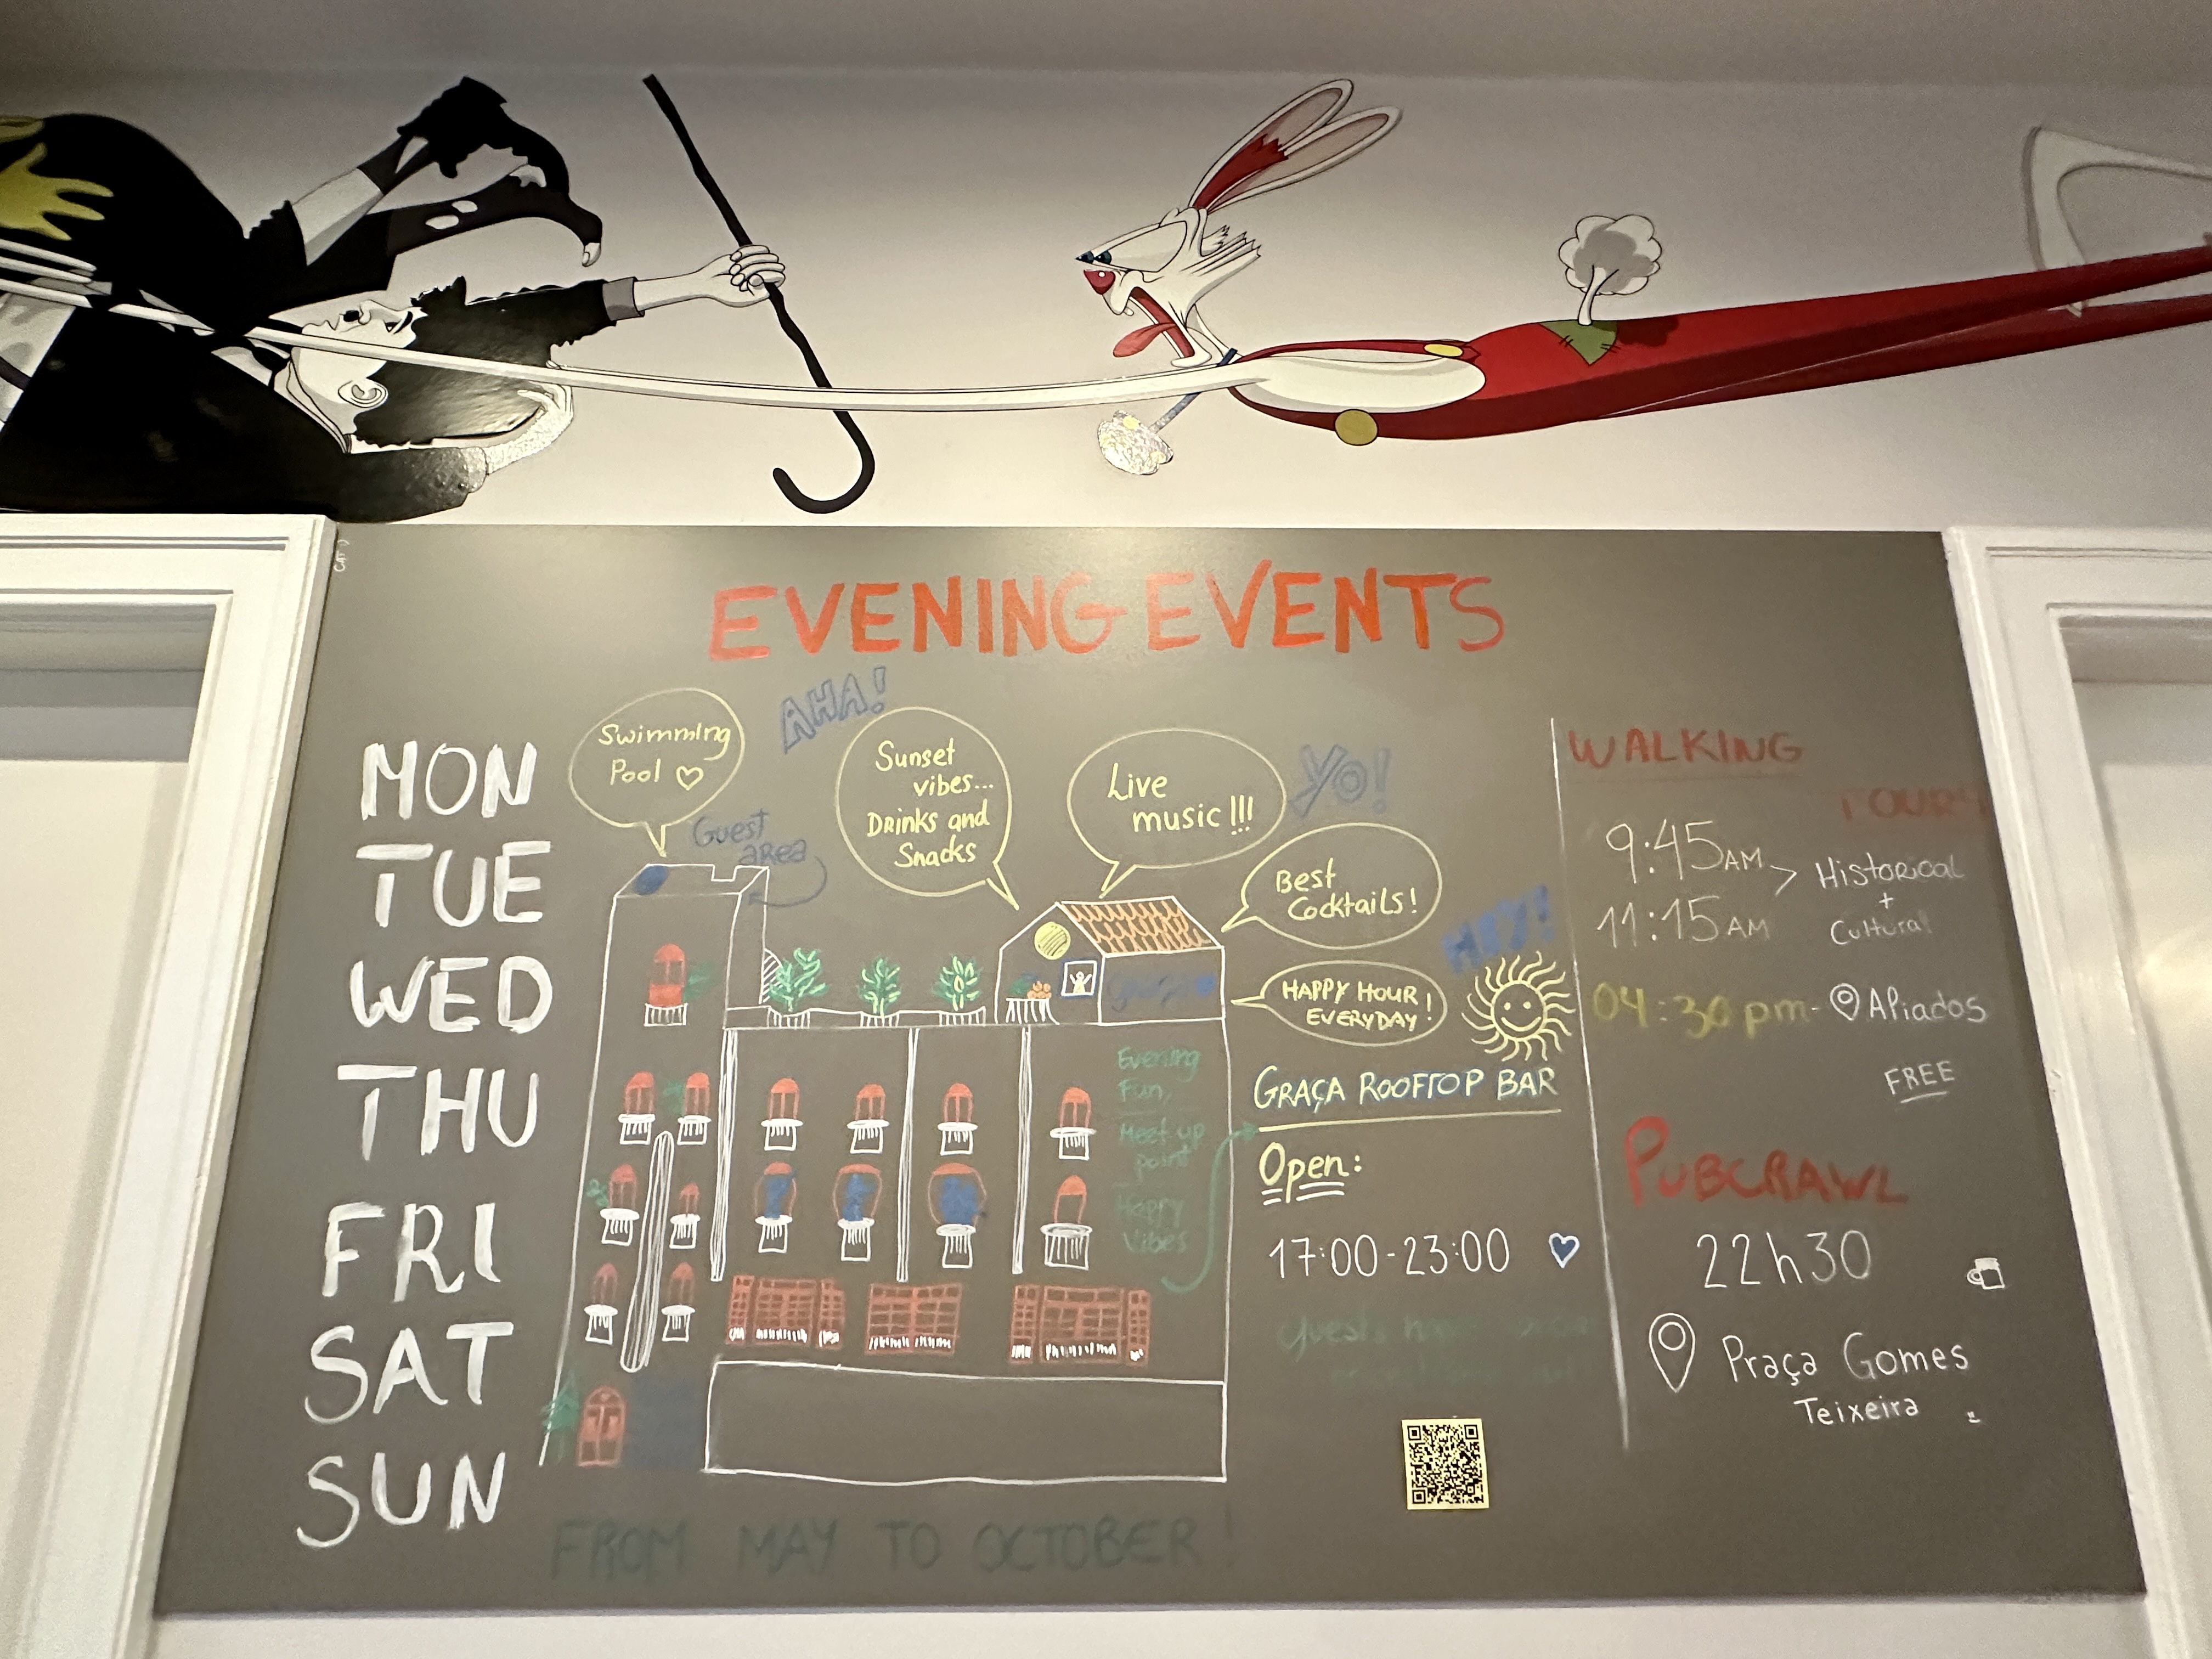 CAT
EVENING EVENTS
MON
TUE
WED
THU
FRI
SAT
SUN
Swimming
Pool
AHA!
Guest
area
Sunset
vibes...
Drinks and
Snacks
Live
music!!!
YO!
Best
Cocktails!
HEY!
HAPPY HOUR
EVERYDAY!
Evening
Fun,
Meet up
point
Happy
Vibes
GRAÇA ROOFTOP BAR
Open:
17:00-23:00
FROM MAY TO OCTOBER!
WALKING
9:45AM
11:15AM
Historical
+
Cultural
04:30pm- Aliados
FREE
PUBCRAWL
22h30
Praça Gomes
Teixeira